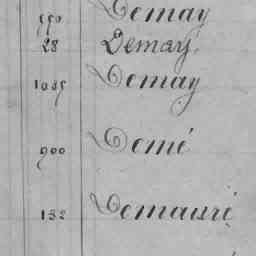 550 Demay
28 Demay.
1085 Demay
900 Demé
132 Demauré